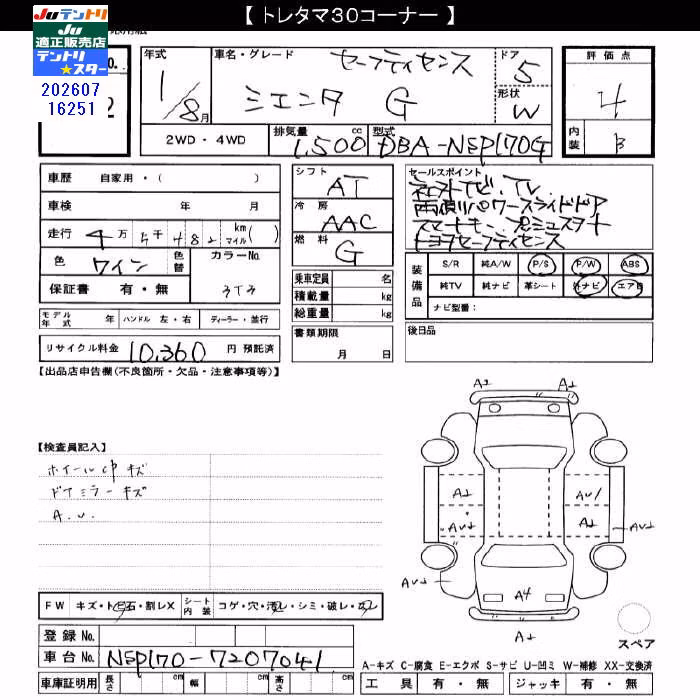 【 トレタマ30コーナー 】
Juテントリ
Ju
適正販売店
テントリ
★スター
202607
16251
No.
2
年式
1/8月
車名・グレード
セーフティセンス
シエンタ G
ドア
5
形状
W
評価点
4
内装
B
2WD・4WD
排気量
1,500 cc
型式
DBA-NSP170G
車歴 自家用・( )
車検 年 月
走行 4万5千482 km(マイル)
色 ワイン
色替
カラーNo.
3T3
保証書 有・無
シフト
AT
冷房
AAC
燃料
G
セールスポイント
TV
両側パワースライドドア
トヨタセーフティセンス
装備品
S/R 純A/W P/S P/W ABS
純TV 純ナビ 革シート 外ナビ エアB
ナビ型番:
乗車定員 名
積載量 kg
総重量 kg
モデル年式 年 ハンドル 左・右 ディーラー・並行
リサイクル料金 10,360 円 預託済
書類期限
月 日
後日品
【出品店申告欄(不良箇所・欠品・注意事項等)】
【検査員記入】
ホイール中キズ
ドアミラーキズ
A.U.
A2 A2
A2 AU1
AU2 A2 AU2
AU2
A4
A2
スペア
FW キズ・トビ石・割レX
シート内装 コゲ・穴・汚レ・シミ・破レ・切レ
登録No.
車台No. NSP170-7207041
車庫証明用 長さ cm 幅 cm 高さ cm
A-キズ C-腐食 E-エクボ S-サビ U-凹ミ W-補修 XX-交換済
工具 有・無 ジャッキ 有・無